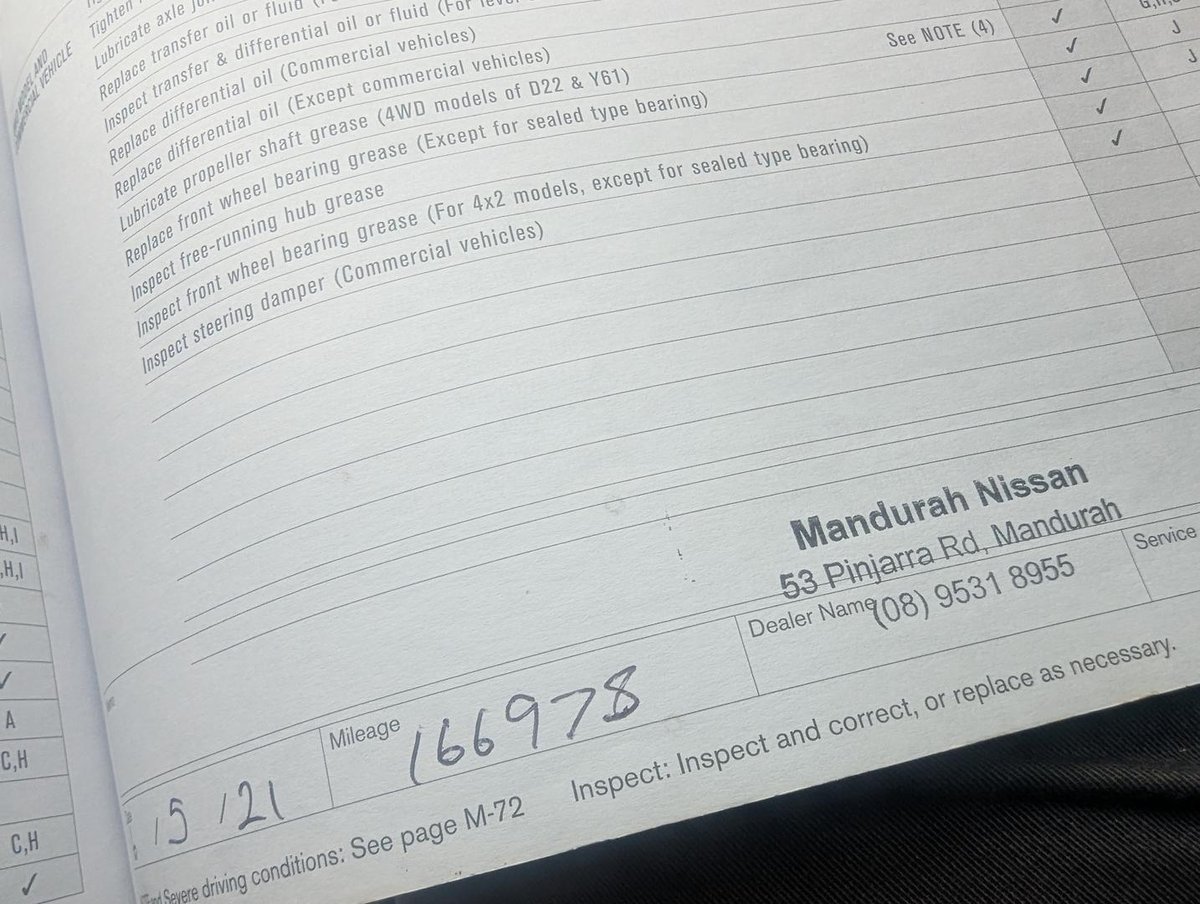 MODEL AND
COMMERCIAL VEHICLE
Tighten
Lubricate axle
Replace transfer oil or fluid
Inspect transfer & differential oil or fluid (For
Replace differential oil (Commercial vehicles)
Replace differential oil (Except commercial vehicles)
See NOTE (4)
Lubricate propeller shaft grease (4WD models of D22 & Y61)
Replace front wheel bearing grease (Except for sealed type bearing)
Inspect free-running hub grease
Inspect front wheel bearing grease (For 4x2 models, except for sealed type bearing)
Inspect steering damper (Commercial vehicles)
✓
✓ J
✓ J
✓
✓
H,I
H,I
✓
✓
A
C,H
C,H
✓
Mandurah Nissan
53 Pinjarra Rd, Mandurah
(08) 9531 8955
Dealer Name
Service
Mileage
166978
/5 /21
Severe driving conditions: See page M-72
Inspect: Inspect and correct, or replace as necessary.